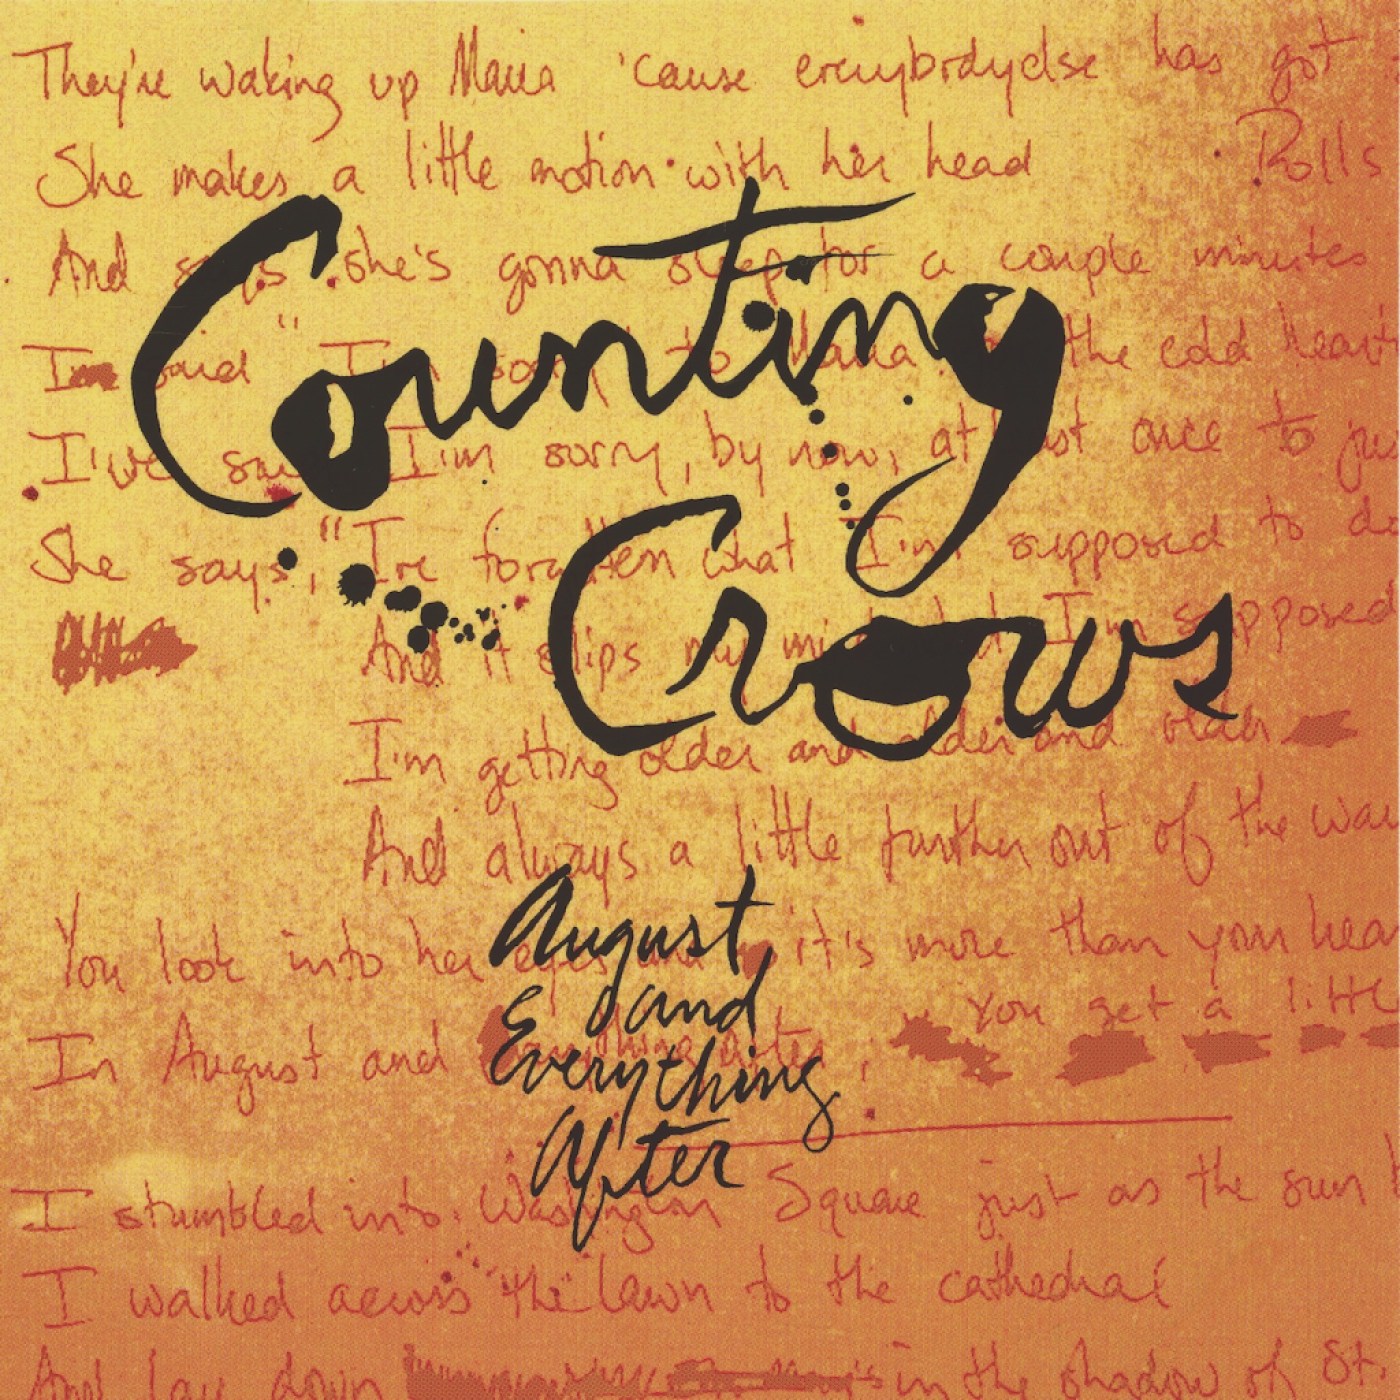 They're waking up Maria 'cause everybodyelse has got
She makes a little motion with her head
Rolls
And says she's gonna sleep for a couple minutes
Counting
I said "I'm sorry to Maria the cold heart
I've said I'm sorry, by now, at least once to ju
Crows
She says, "I've forgotten what I'm supposed to do
And it slips my mind I'm supposed
I'm getting older and older and older
And always a little further out of the way
August
and
Everything
After
You look into her eyes and it's more than your hea
You get a littl
In August and everything after,
I stumbled into Washington Square just as the sun
I walked across the lawn to the cathedral
And lay down in the shadow of St.